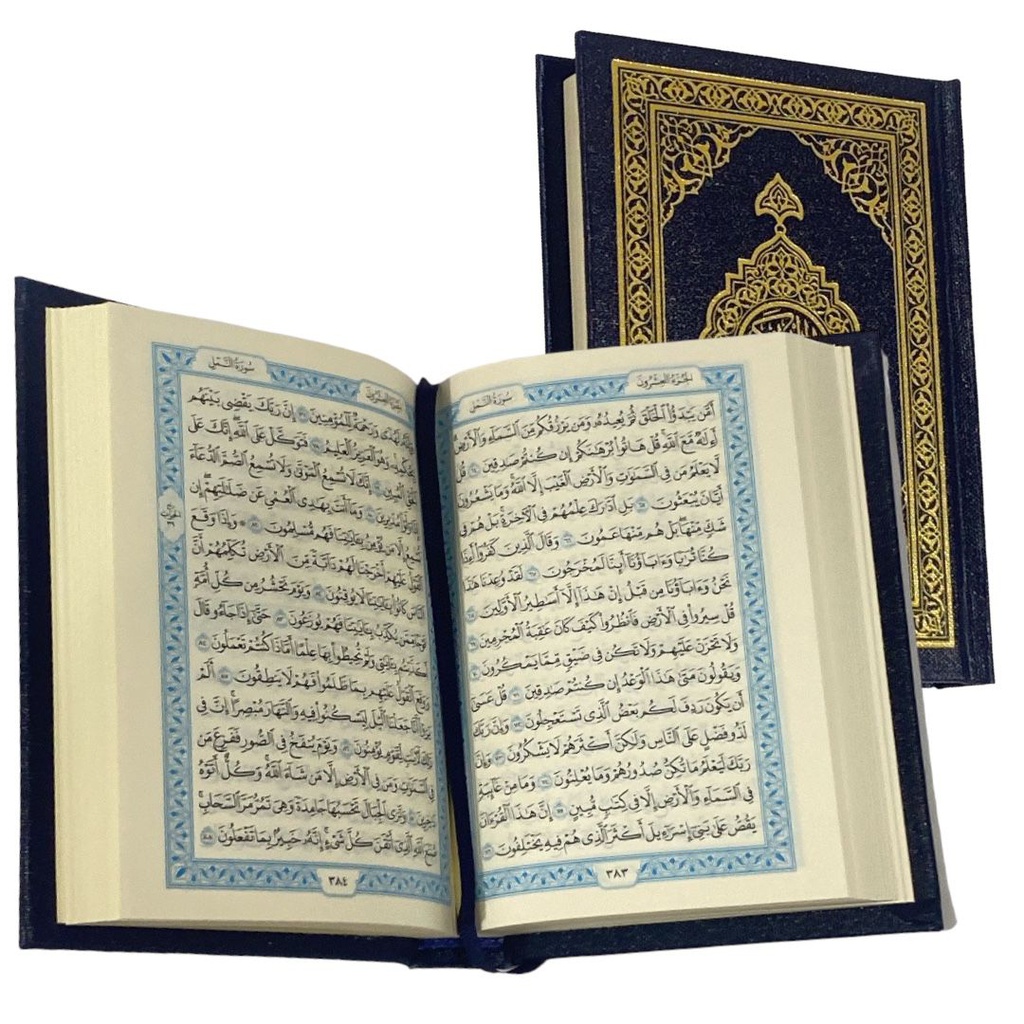 الجُزْءُ العِشْرُونَ سُورَةُ النَّمْلِ
أَمَّن يَبْدَؤُا۟ ٱلْخَلْقَ ثُمَّ يُعِيدُهُۥ وَمَن يَرْزُقُكُم مِّنَ ٱلسَّمَآءِ وَٱلْأَرْضِۗ
أَءِلَٰهٌ مَّعَ ٱللَّهِۚ قُلْ هَاتُوا۟ بُرْهَٰنَكُمْ إِن كُنتُمْ صَٰدِقِينَ ٦٤ قُل
لَّا يَعْلَمُ مَن فِى ٱلسَّمَٰوَٰتِ وَٱلْأَرْضِ ٱلْغَيْبَ إِلَّا ٱللَّهُۚ وَمَا يَشْعُرُونَ
أَيَّانَ يُبْعَثُونَ ٦٥ بَلِ ٱدَّٰرَكَ عِلْمُهُمْ فِى ٱلْءَاخِرَةِۚ بَلْ هُمْ فِى
شَكٍّ مِّنْهَاۖ بَلْ هُم مِّنْهَا عَمُونَ ٦٦ وَقَالَ ٱلَّذِينَ كَفَرُوٓا۟ أَءِذَا
كُنَّا تُرَٰبًا وَءَابَآؤُنَآ أَئِنَّا لَمُخْرَجُونَ ٦٧ لَقَدْ وُعِدْنَا هَٰذَا
نَحْنُ وَءَابَآؤُنَا مِن قَبْلُ إِنْ هَٰذَآ إِلَّآ أَسَٰطِيرُ ٱلْأَوَّلِينَ ٦٨
قُلْ سِيرُوا۟ فِى ٱلْأَرْضِ فَٱنظُرُوا۟ كَيْفَ كَانَ عَٰقِبَةُ ٱلْمُجْرِمِينَ ٦٩
وَلَا تَحْزَنْ عَلَيْهِمْ وَلَا تَكُن فِى ضَيْقٍ مِّمَّا يَمْكُرُونَ ٧٠
وَيَقُولُونَ مَتَىٰ هَٰذَا ٱلْوَعْدُ إِن كُنتُمْ صَٰدِقِينَ ٧١ قُلْ عَسَىٰٓ
أَن يَكُونَ رَدِفَ لَكُم بَعْضُ ٱلَّذِى تَسْتَعْجِلُونَ ٧٢ وَإِنَّ رَبَّكَ
لَذُو فَضْلٍ عَلَى ٱلنَّاسِ وَلَٰكِنَّ أَكْثَرَهُمْ لَا يَشْكُرُونَ ٧٣ وَإِنَّ
رَبَّكَ لَيَعْلَمُ مَا تُكِنُّ صُدُورُهُمْ وَمَا يُعْلِنُونَ ٧٤ وَمَا مِنْ غَآئِبَةٍ
فِى ٱلسَّمَآءِ وَٱلْأَرْضِ إِلَّا فِى كِتَٰبٍ مُّبِينٍ ٧٥ إِنَّ هَٰذَا ٱلْقُرْءَانَ
يَقُصُّ عَلَىٰ بَنِىٓ إِسْرَٰٓءِيلَ أَكْثَرَ ٱلَّذِى هُمْ فِيهِ يَخْتَلِفُونَ ٧٦
٣٨٣
الجُزْءُ العِشْرُونَ سُورَةُ النَّمْلِ
لَهُدًى وَرَحْمَةٌ لِّلْمُؤْمِنِينَ ٧٧ إِنَّ رَبَّكَ يَقْضِى بَيْنَهُم
بِحُكْمِهِۦۚ وَهُوَ ٱلْعَزِيزُ ٱلْعَلِيمُ ٧٨ فَتَوَكَّلْ عَلَى ٱللَّهِۖ إِنَّكَ عَلَى
ٱلْحَقِّ ٱلْمُبِينِ ٧٩ إِنَّكَ لَا تُسْمِعُ ٱلْمَوْتَىٰ وَلَا تُسْمِعُ ٱلصُّمَّ ٱلدُّعَآءَ
إِذَا وَلَّوْا۟ مُدْبِرِينَ ٨٠ وَمَآ أَنتَ بِهَٰدِى ٱلْعُمْىِ عَن ضَلَٰلَتِهِمْۖ إِن
تُسْمِعُ إِلَّا مَن يُؤْمِنُ بِـَٔايَٰتِنَا فَهُم مُّسْلِمُونَ ٨١ ۞ وَإِذَا وَقَعَ
ٱلْقَوْلُ عَلَيْهِمْ أَخْرَجْنَا لَهُمْ دَآبَّةً مِّنَ ٱلْأَرْضِ تُكَلِّمُهُمْ أَنَّ
ٱلنَّاسَ كَانُوا۟ بِـَٔايَٰتِنَا لَا يُوقِنُونَ ٨٢ وَيَوْمَ نَحْشُرُ مِن كُلِّ أُمَّةٍ
فَوْجًا مِّمَّن يُكَذِّبُ بِـَٔايَٰتِنَا فَهُمْ يُوزَعُونَ ٨٣ حَتَّىٰٓ إِذَا جَآءُو قَالَ
أَكَذَّبْتُم بِـَٔايَٰتِى وَلَمْ تُحِيطُوا۟ بِهَا عِلْمًا أَمَّاذَا كُنتُمْ تَعْمَلُونَ ٨٤
وَوَقَعَ ٱلْقَوْلُ عَلَيْهِم بِمَا ظَلَمُوا۟ فَهُمْ لَا يَنطِقُونَ ٨٥ أَلَمْ
يَرَوْا۟ أَنَّا جَعَلْنَا ٱلَّيْلَ لِيَسْكُنُوا۟ فِيهِ وَٱلنَّهَارَ مُبْصِرًاۚ إِنَّ فِى
ذَٰلِكَ لَـَٔايَٰتٍ لِّقَوْمٍ يُؤْمِنُونَ ٨٦ وَيَوْمَ يُنفَخُ فِى ٱلصُّورِ فَفَزِعَ مَن
فِى ٱلسَّمَٰوَٰتِ وَمَن فِى ٱلْأَرْضِ إِلَّا مَن شَآءَ ٱللَّهُۚ وَكُلٌّ أَتَوْهُ
دَٰخِرِينَ ٨٧ وَتَرَى ٱلْجِبَالَ تَحْسَبُهَا جَامِدَةً وَهِىَ تَمُرُّ مَرَّ ٱلسَّحَابِۚ
صُنْعَ ٱللَّهِ ٱلَّذِىٓ أَتْقَنَ كُلَّ شَىْءٍۚ إِنَّهُۥ خَبِيرٌۢ بِمَا تَفْعَلُونَ ٨٨
٣٨٤